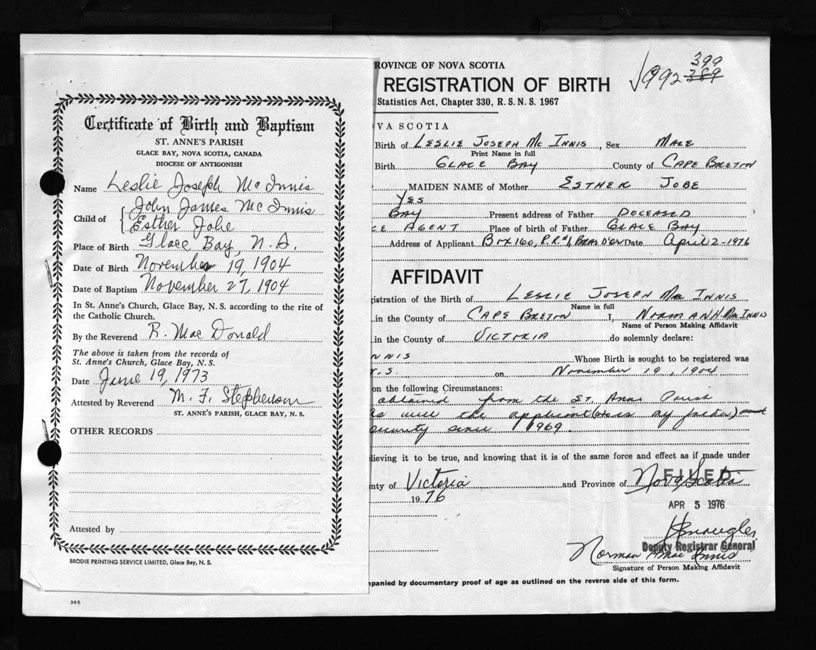 Certificate of Birth and Baptism
ST. ANNE'S PARISH
GLACE BAY, NOVA SCOTIA, CANADA
DIOCESE OF ANTIGONISH
Name Leslie Joseph Mc Innis
Child of { John James Mc Innis
Esther Jobe
Place of Birth Glace Bay, N.S.
Date of Birth November 19, 1904
Date of Baptism November 27, 1904
In St. Anne's Church, Glace Bay, N. S. according to the rite of
the Catholic Church.
By the Reverend R. Mac Donald
The above is taken from the records of
St. Anne's Church, Glace Bay, N. S.
Date June 19, 1973
Attested by Reverend M. F. Stephenson
ST. ANNE'S PARISH, GLACE BAY, N. S.
OTHER RECORDS
Attested by
BRODIE PRINTING SERVICE LIMITED, Glace Bay, N. S.
305
ROVINCE OF NOVA SCOTIA
399
REGISTRATION OF BIRTH 992 389
Statistics Act, Chapter 330, R. S. N. S. 1967
VA SCOTIA
Birth of LESLIE JOSEPH Mc INNIS, Sex MALE
Print Name in full
Birth GLACE BAY County of CAPE BRETON
MAIDEN NAME of Mother ESTHER JOBE
YES
BAY Present address of Father DECEASED
CE AGENT Place of birth of Father GLACE BAY
Address of Applicant Box 160, R.R.#1, BRAS D'OR Date April 2-1976
AFFIDAVIT
gistration of the Birth of LESLIE JOSEPH Mac INNIS
Name in full
in the County of CAPE BRETON I, NORMAN H. Mac INNIS
Name of Person Making Affidavit
in the County of VICTORIA do solemnly declare:
NNIS Whose Birth is sought to be registered was
N.S. on November 19, 1904
on the following Circumstances:
obtained from the St. Anns Parish
will the applicant (who is my father) and
security since 1969.
lieving it to be true, and knowing that it is of the same force and effect as if made under
nty of Victoria and Province of Nova Scotia
FILED
1976
APR 5 1976
Deputy Registrar General
Norman H Mac Innis
Signature of Person Making Affidavit
panied by documentary proof of age as outlined on the reverse side of this form.